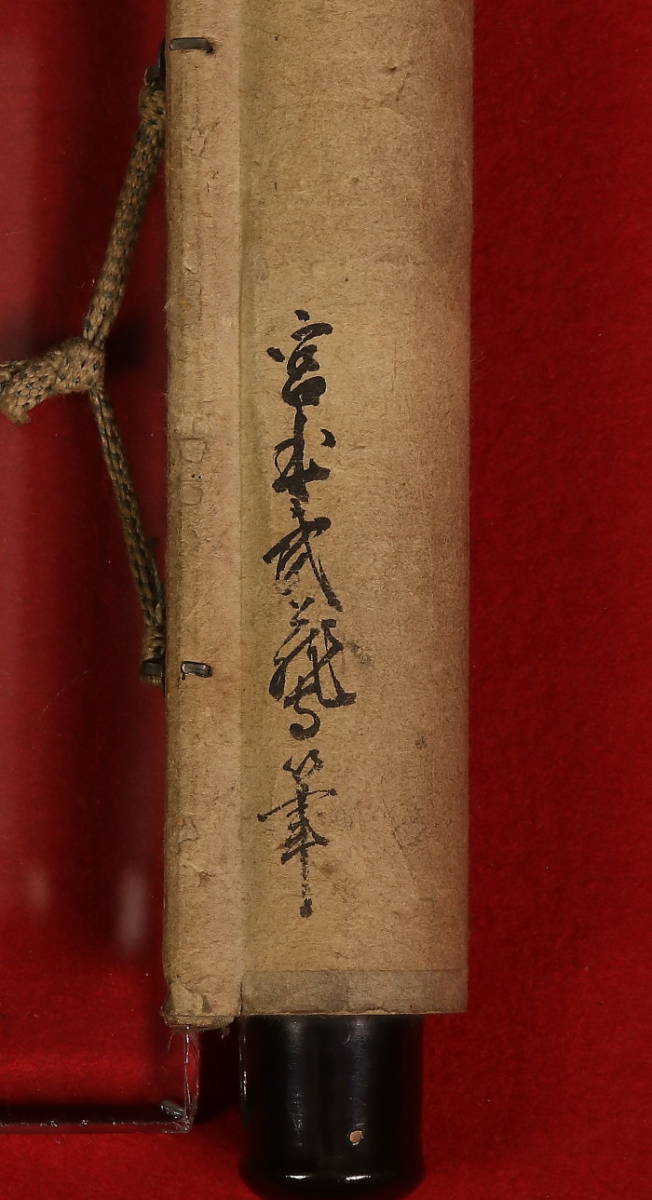 宮本武藏筆